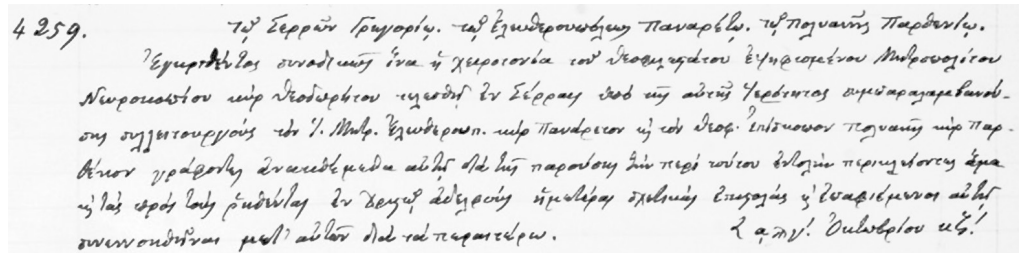 4259. τῷ Σερρῶν Γρηγορίῳ. τῷ Ἐλευθερουπόλεως Παναρέτῳ. τῷ Πολυανῆς Παρθενίῳ.
Ἐγκριθέντος συνοδικῶς ἵνα ἡ χειροτονία τοῦ θεοφιλεστάτου ἐψηφισμένου Μητροπολίτου
Νευροκοπίου κὺρ Θεοδωρήτου τελεσθῇ ἐν Σέρραις ὑπὸ τῆς αὐτῆς Ἱερότητος συμπαραλαμβανού-
σης συλλειτουργοὺς τὸν Ἱ. Μητρ. Ἐλευθερουπ. κὺρ Πανάρετον κ τὸν θεοφ. ἐπίσκοπον Πολυανῆς κὺρ Παρ-
θένιον γράφοντες ἀνατιθέμεθα αὐτῇ διὰ τῆς παρούσης τὴν περὶ τούτου ἐντολὴν περικλείοντες ἅμα
κ τὰς πρὸς τοὺς ῥηθέντας ἐν Χριστῷ ἀδελφοὺς ἡμετέρας σχετικὰς ἐπιστολὰς κ ἐπαφιέμενοι αὐτῇ
συνεννοηθῆναι μετ' αὐτῶν διὰ τὰ περαιτέρω. αωγ' Ὀκτωβρίου κζ'